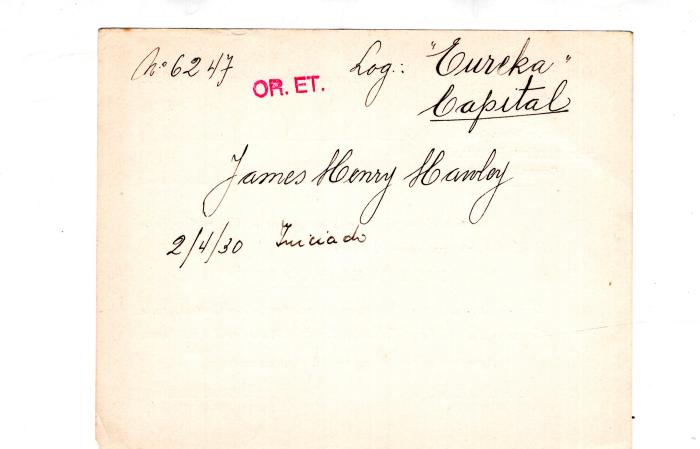 Nº 6247 Log.: "Eureka"
OR. ET.
Capital
James Henry Hawley
2/4/30 Iniciado